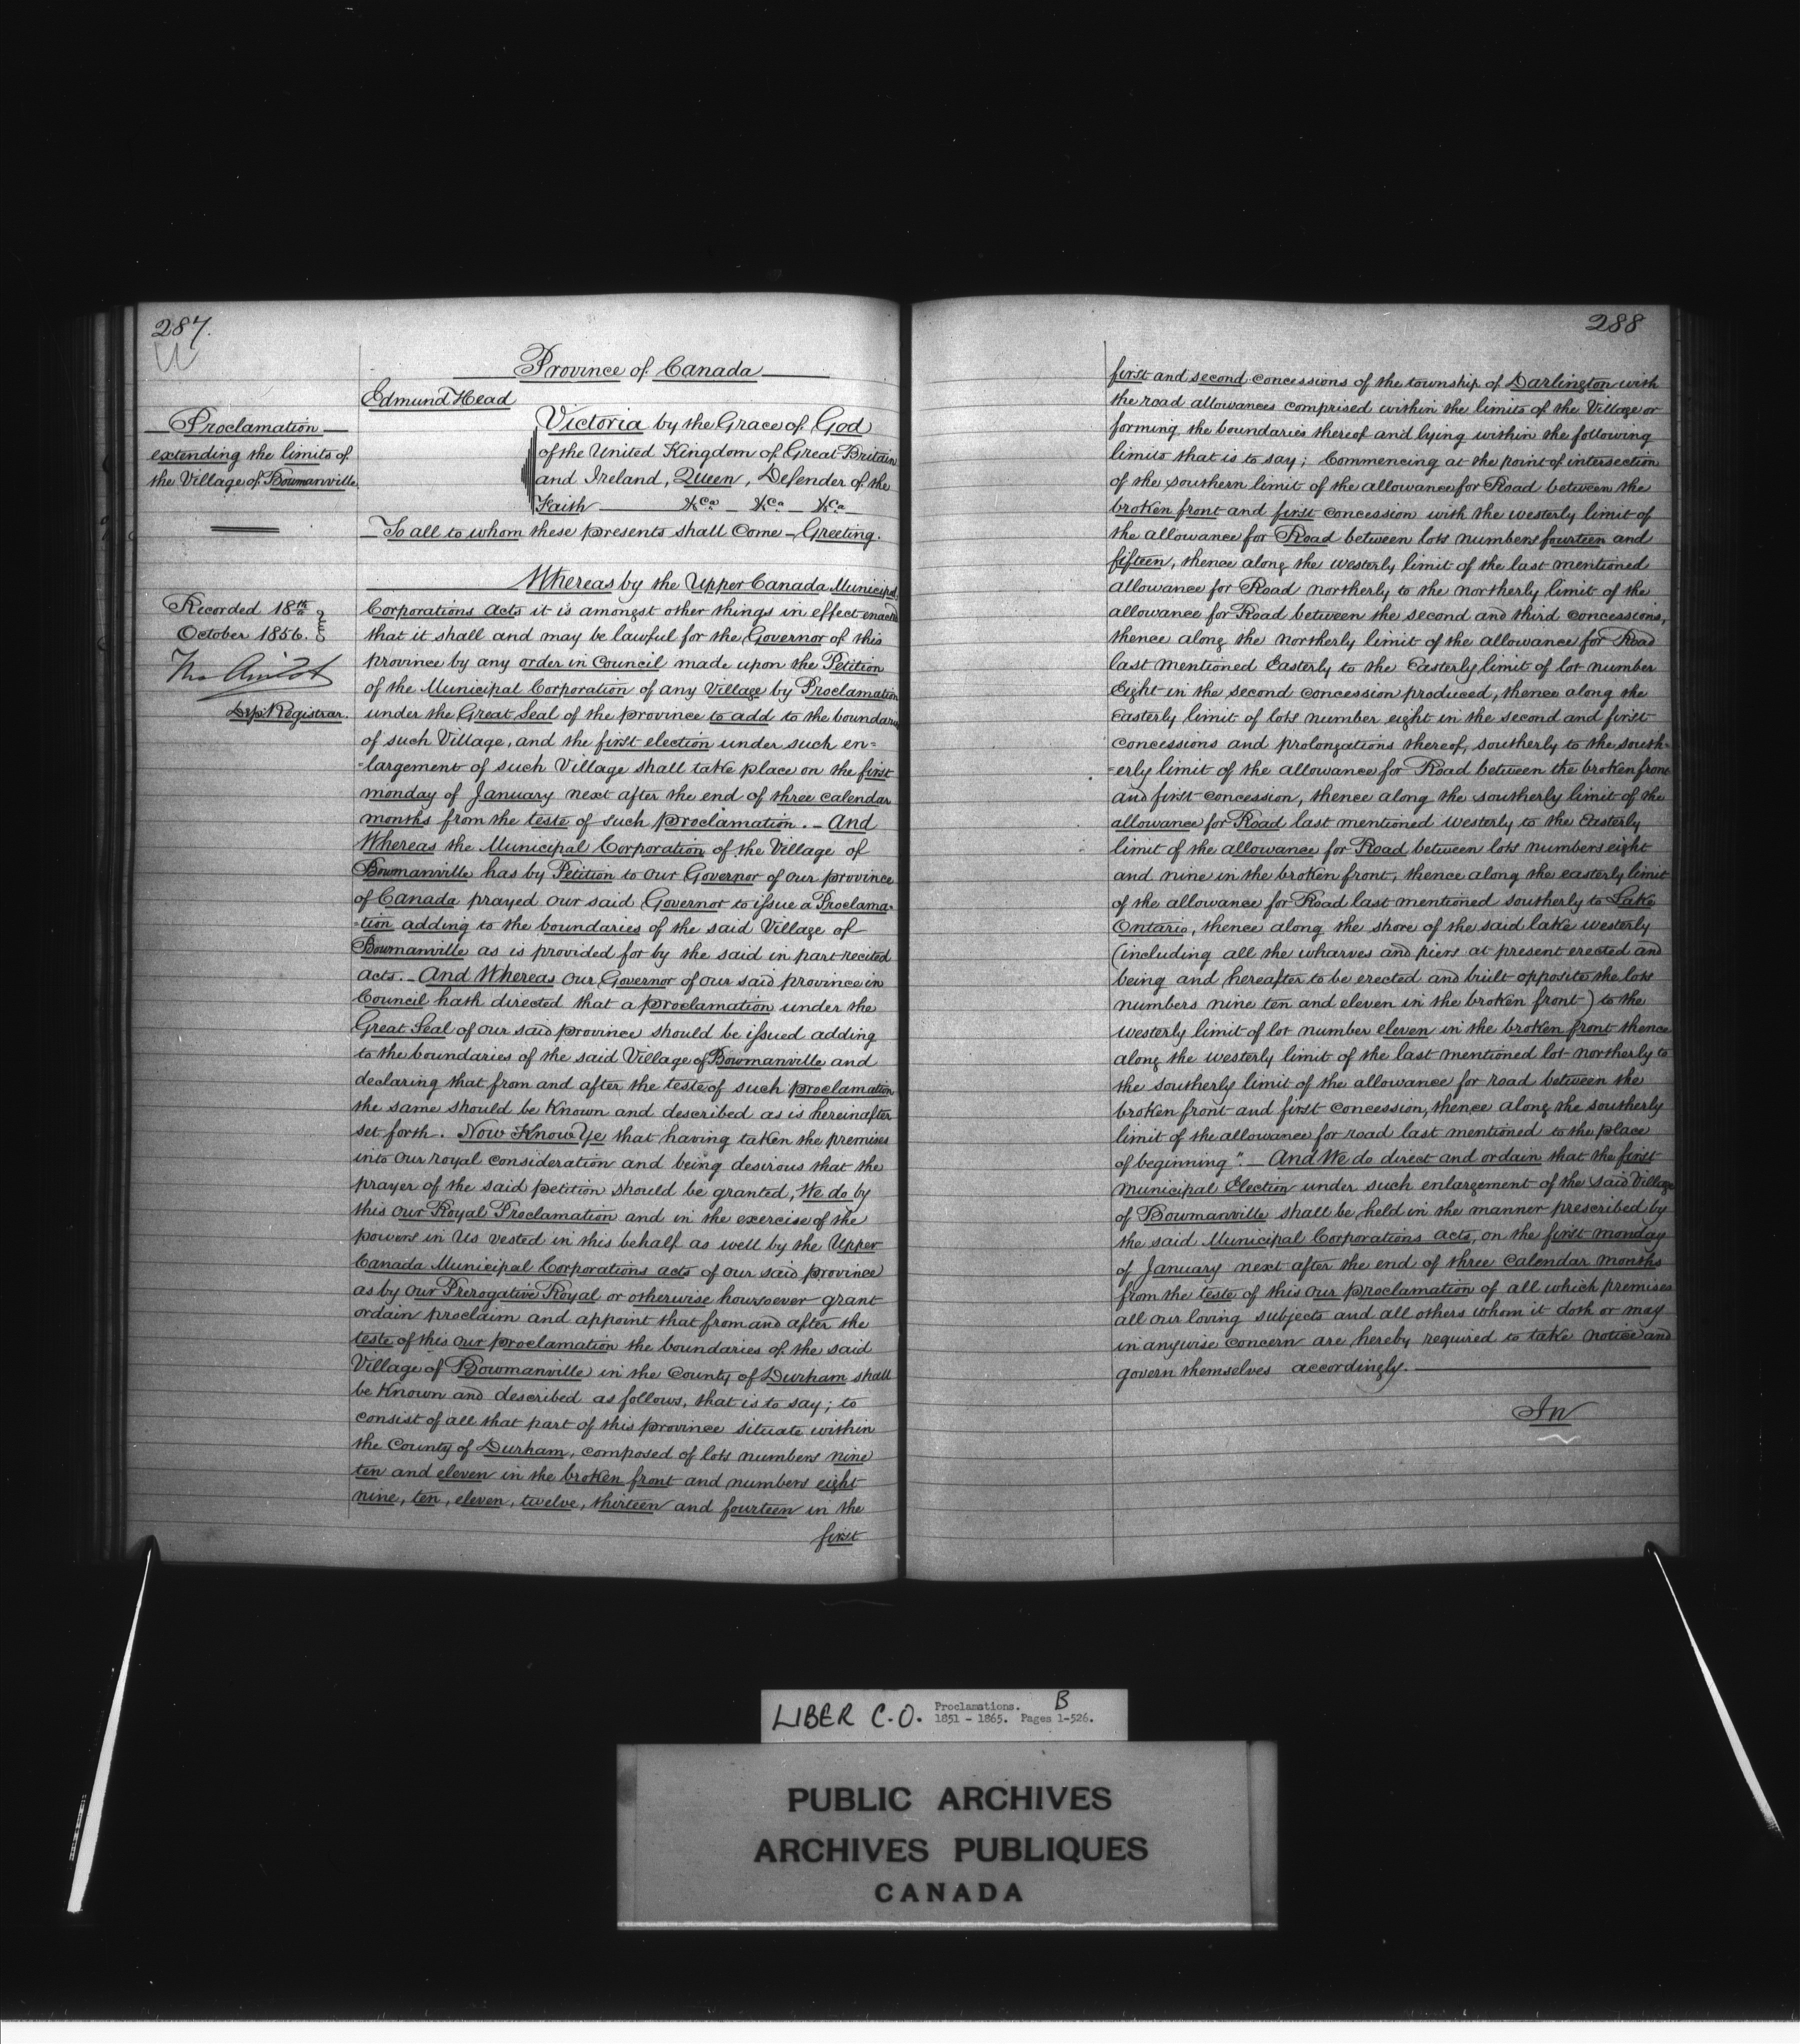 287.
Province of Canada
Edmund Head
Proclamation
extending the limits of
the Village of Bowmanville.
Recorded 18th
October 1856.
Dep Registrar.
Victoria by the Grace of God
of the United Kingdom of Great Britain
and Ireland, Queen, Defender of the
Faith &ca &ca &ca
To all to whom these presents shall Come – Greeting.
Whereas by the Upper Canada Municipal
Corporations acts it is amongst other things in effect enacted
that it shall and may be lawful for the Governor of this
province by any order in Council made upon the Petition
of the Municipal Corporation of any Village by Proclamation
under the Great Seal of the province to add to the boundary
of such Village, and the first election under such en=
=largement of such Village shall take place on the first
monday of January next after the end of three calendar
months from the teste of such proclamation. – And
Whereas the Municipal Corporation of the Village of
Bowmanville has by Petition to our Governor of our province
of Canada prayed our said Governor to issue a Proclama=
=tion adding to the boundaries of the said Village of
Bowmanville as is provided for by the said in part recited
acts. – And Whereas our Governor of our said province in
Council hath directed that a proclamation under the
Great Seal of our said province should be issued adding
to the boundaries of the said Village of Bowmanville and
declaring that from and after the teste of such proclamation
the same should be known and described as is hereinafter
set forth. Now Know Ye that having taken the premises
into our royal consideration and being desirous that the
prayer of the said petition should be granted, We do by
this our Royal Proclamation and in the exercise of the
powers in Us vested in this behalf as well by the Upper
Canada Municipal Corporations acts of our said province
as by our Prerogative Royal or otherwise howsoever grant
ordain proclaim and appoint that from and after the
teste of this our proclamation the boundaries of the said
Village of Bowmanville in the County of Durham shall
be known and described as follows, that is to say; to
consist of all that part of this province situate within
the County of Durham, composed of lots numbers nine
ten and eleven in the broken front and numbers eight
nine, ten, eleven, twelve, thirteen and fourteen in the
first
288
first and second concessions of the township of Darlington with
the road allowances comprised within the limits of the Village or
forming the boundaries thereof and lying within the following
limits that is to say; Commencing at the point of intersection
of the southern limit of the allowance for Road between the
broken front and first concession with the westerly limit of
the allowance for Road between lots numbers fourteen and
fifteen, thence along the westerly limit of the last mentioned
allowance for Road northerly to the northerly limit of the
allowance for Road between the second and third concessions,
thence along the northerly limit of the allowance for Road
last mentioned Easterly to the Easterly limit of lot number
Eight in the second concession produced, thence along the
Easterly limit of lots number eight in the second and first
concessions and prolongations thereof, southerly to the south=
=erly limit of the allowance for Road between the broken front
and first concession, thence along the southerly limit of the
allowance for Road last mentioned westerly to the Easterly
limit of the allowance for Road between lots numbers eight
and nine in the broken front, thence along the easterly limit
of the allowance for Road last mentioned southerly to Lake
Ontario, thence along the shore of the said lake westerly
(including all the wharves and piers at present erected and
being and hereafter to be erected and built opposite the lots
numbers nine ten and eleven in the broken front) to the
westerly limit of lot number eleven in the broken front thence
along the westerly limit of the last mentioned lot northerly to
the southerly limit of the allowance for road between the
broken front and first concession, thence along the southerly
limit of the allowance for road last mentioned to the place
of beginning". – And We do direct and ordain that the first
municipal Election under such enlargement of the said Village
of Bowmanville shall be held in the manner prescribed by
the said Municipal Corporations acts, on the first monday
of January next after the end of three calendar months
from the teste of this our proclamation of all which premises
all our loving subjects and all others whom it doth or may
in anywise concern are hereby required to take notice and
govern themselves accordingly.
In
LIBER C.O. Proclamations. B
1851 - 1865. Pages 1-526.
PUBLIC ARCHIVES
ARCHIVES PUBLIQUES
CANADA